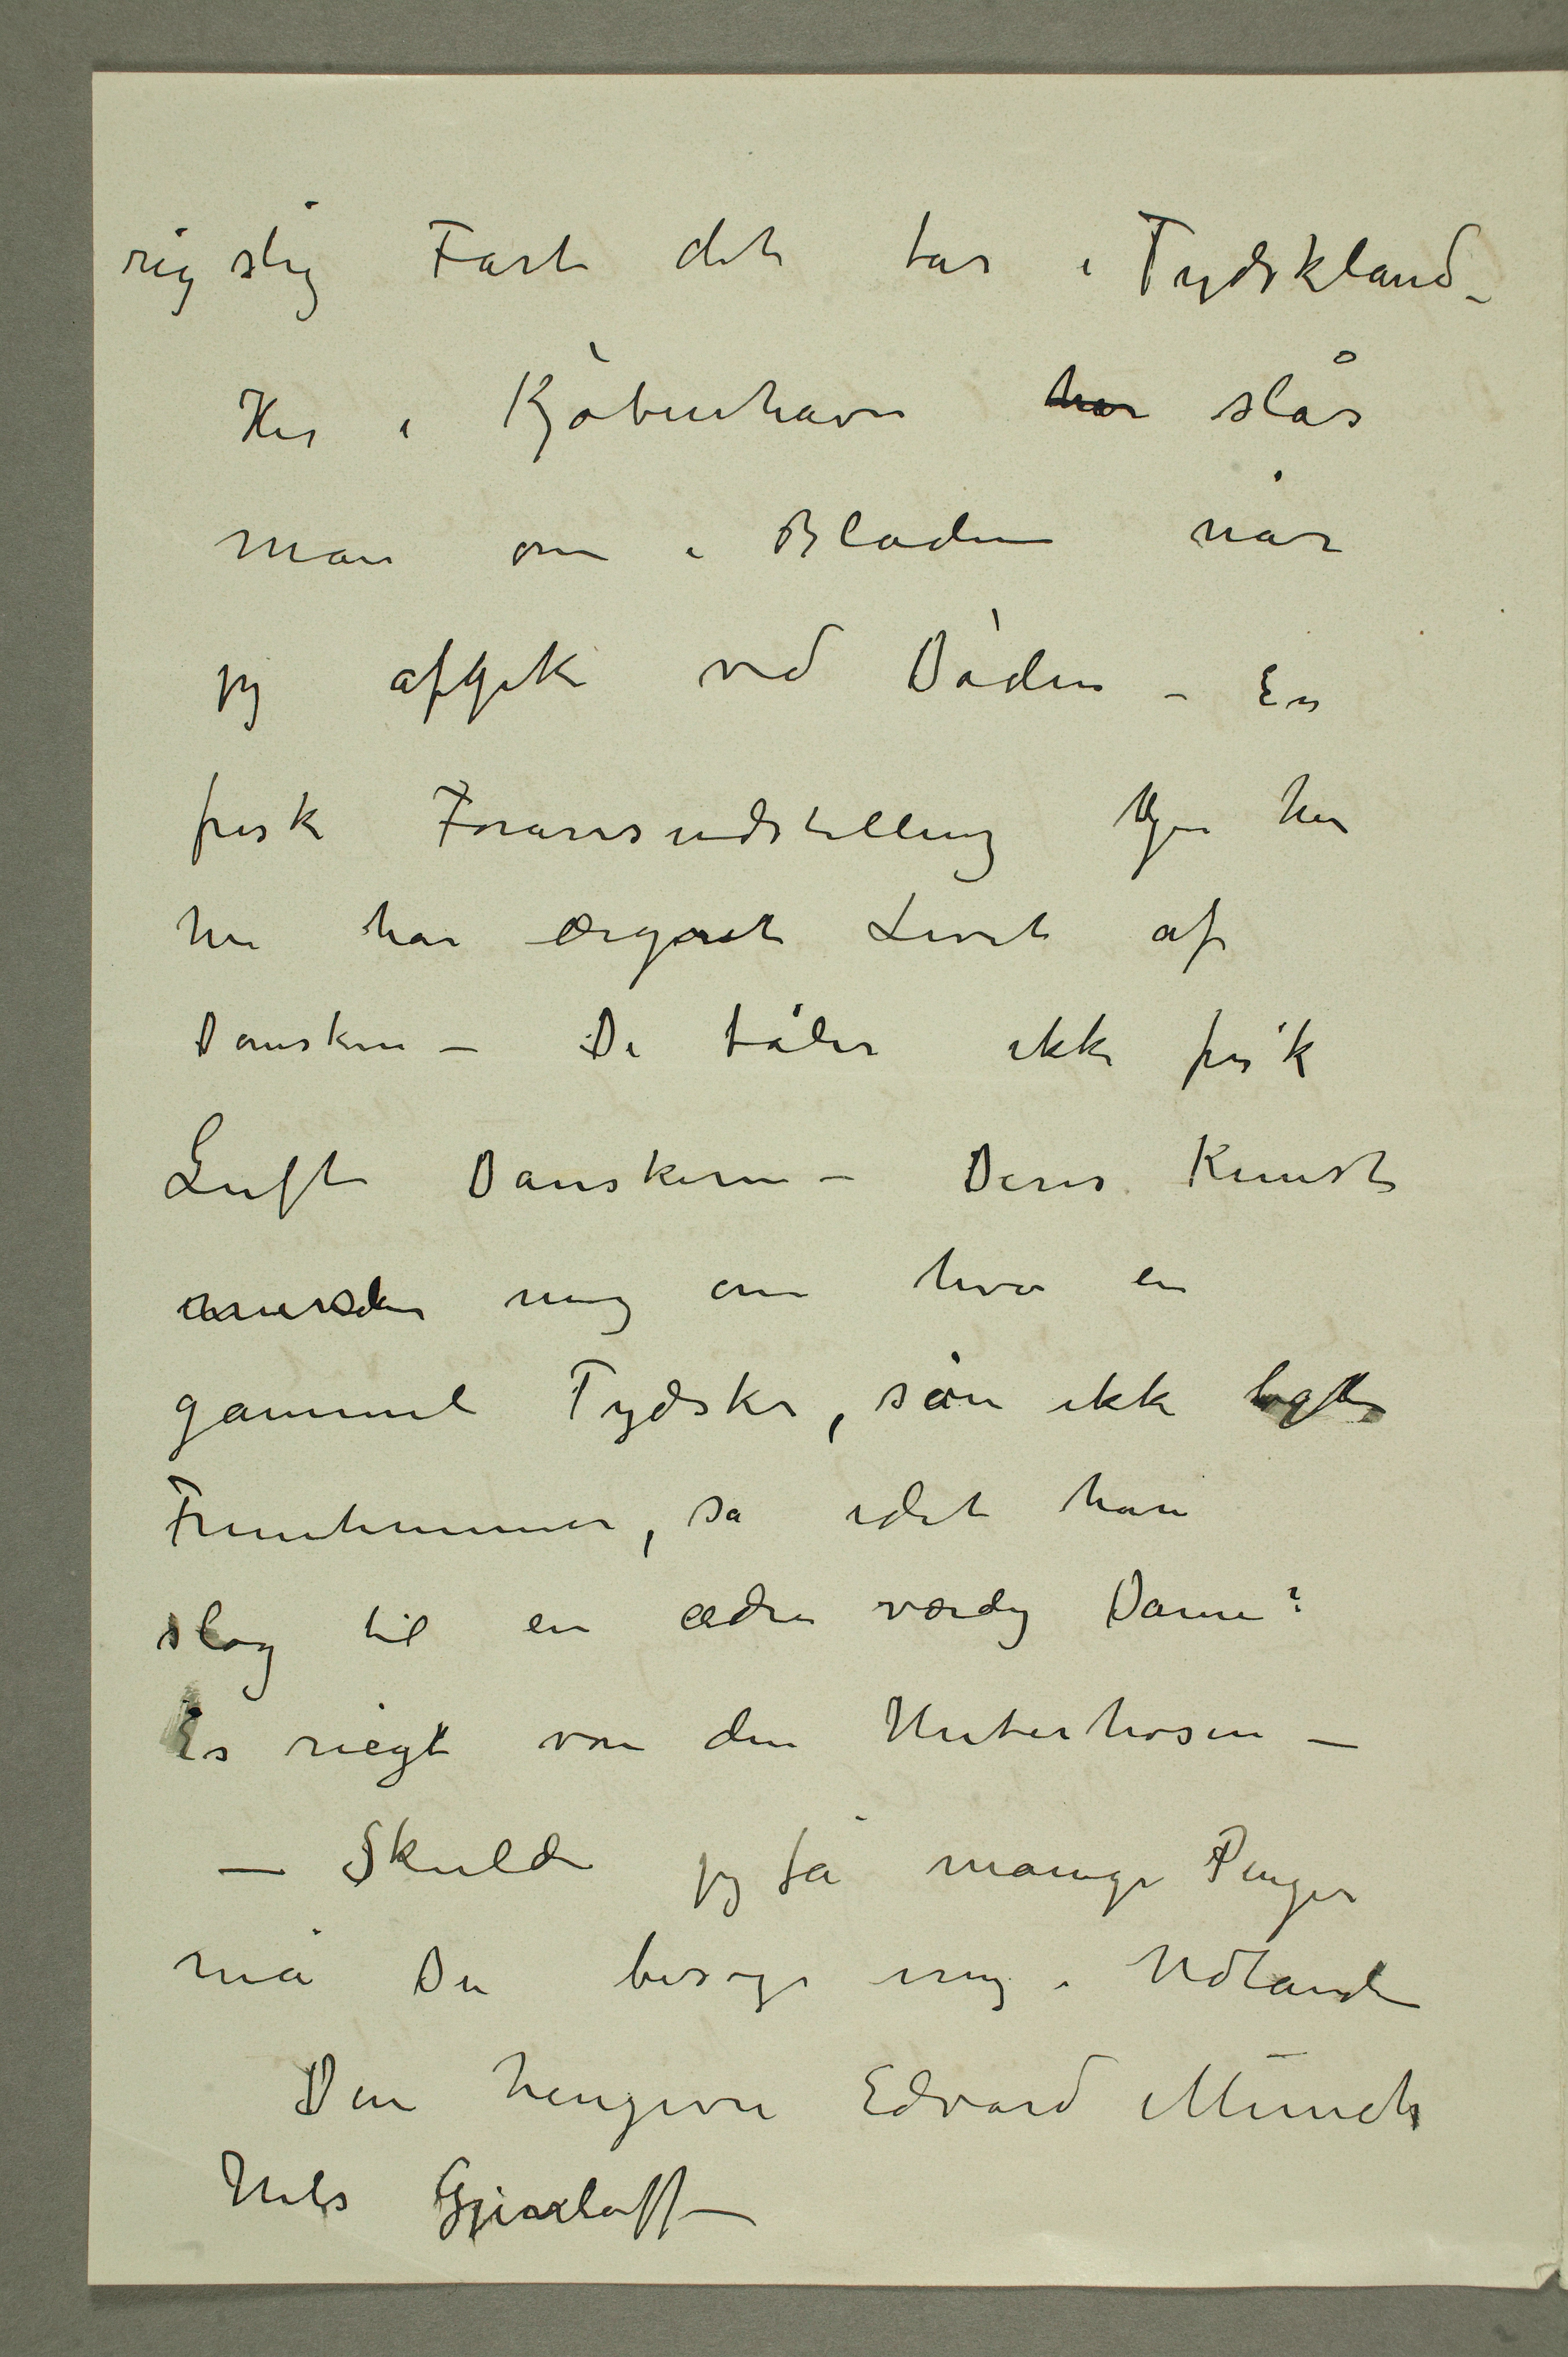 rig slig Fart det tar i Tydskland –
Her i Kjøbenhavn har slås
man om i Bladene når
jeg afgik ved Døden – En
frisk Forårsudstilling af her
har ærgret Livet af
Dansken – De tåler ikke frisk
Luft Danskerne – Deres Kunst
minder mig om hva en
gammel Tydsker, som ikke lugter
Fruentimmer, sa idet han
slog til en ældre værdig Dame:
Es riegt von den Unterhosen –
– Skulde jeg få mange Penger
må Du besøge mig i Udlandet
Din hengivne Edvard Munch
Hils Gjerløff –